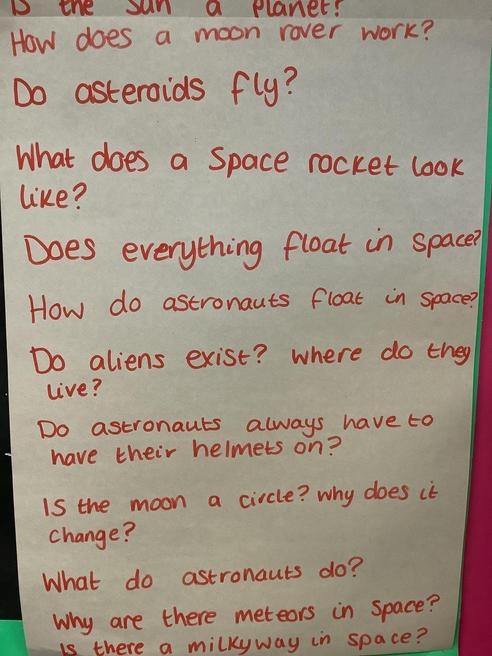 Is the sun a planet?
How does a moon rover work?
Do asteroids fly?
What does a Space rocket look
like?
Does everything float in space?
How do astronauts float in space?
Do aliens exist? where do they
live?
Do astronauts always have to
have their helmets on?
Is the moon a circle? why does it
change?
What do astronauts do?
Why are there meteors in space?
Is there a milkyway in space?